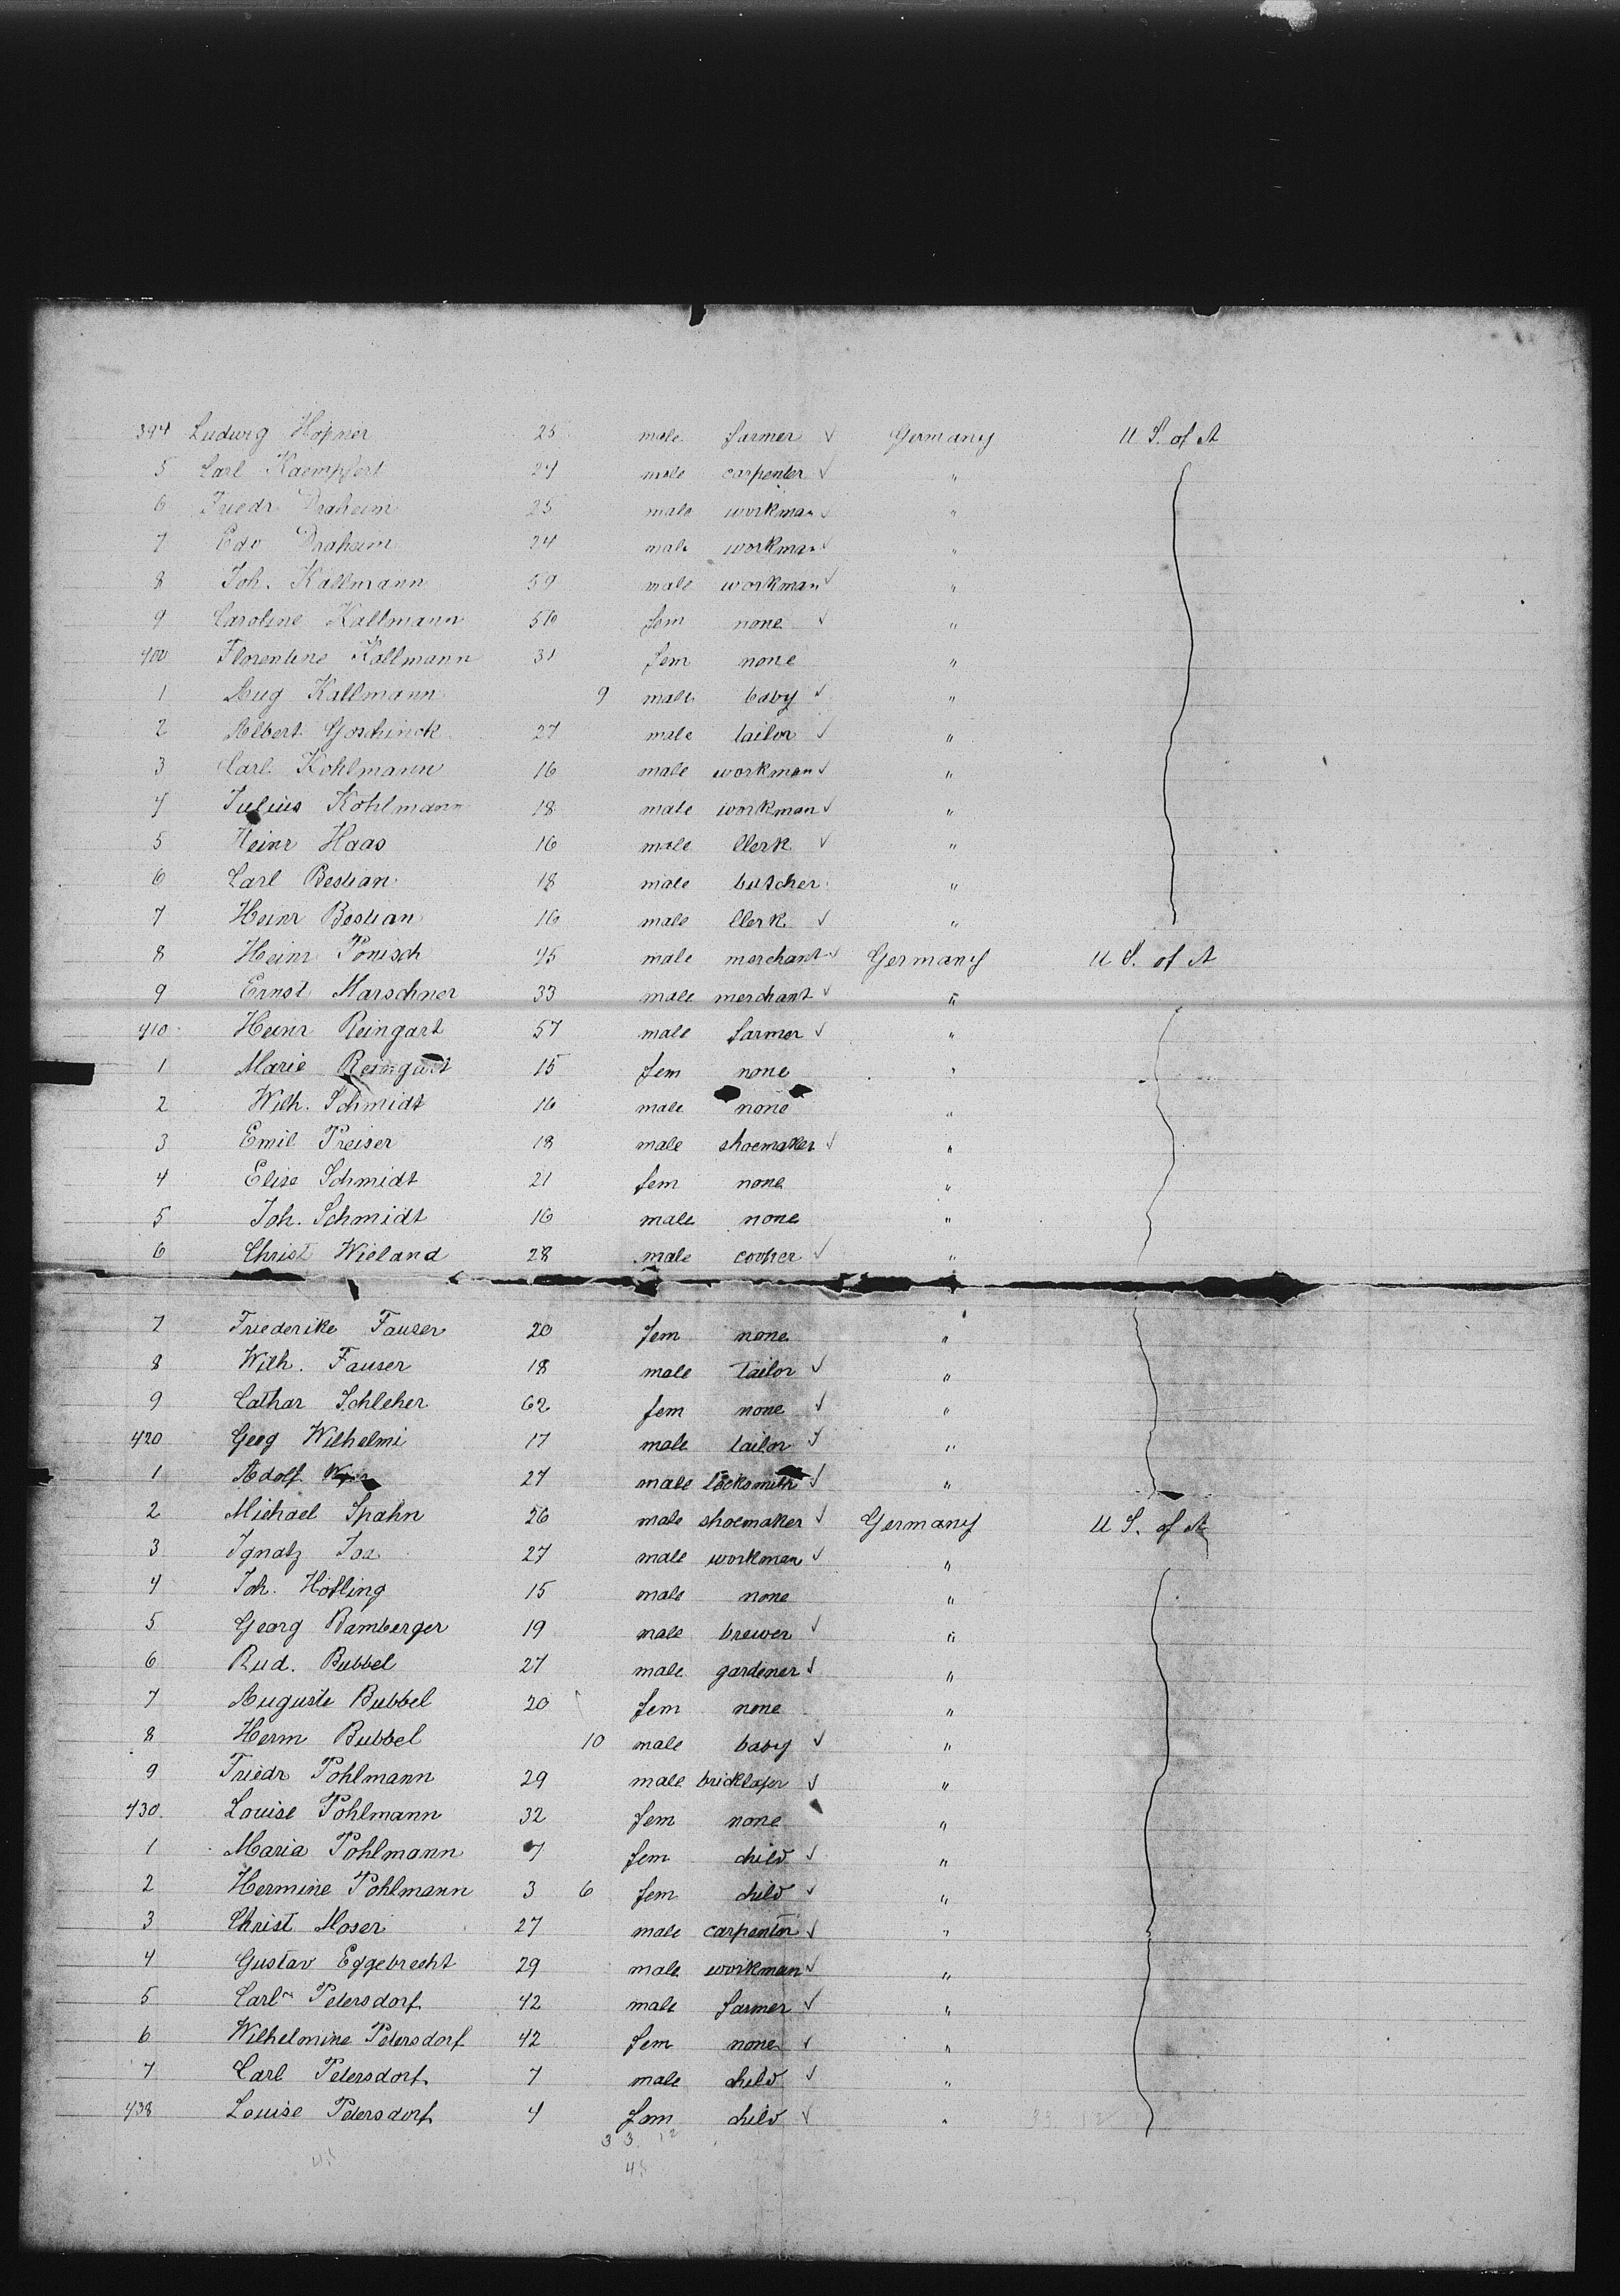 394 Ludwig Höpner 25 male farmer ✓ Germany U S. of A
5 Carl Kaempfert 24 male carpenter ✓ "
6 Friedr Draheim 25 male workman ✓ "
7 Edv Draheim 24 male workman ✓ "
8 Joh. Kallmann 59 male workman ✓ "
9 Caroline Kallmann 56 fem none ✓ "
400 Florentine Kallmann 31 fem none "
1 Aug Kallmann 9 male baby ✓ "
2 Albert Goschinck 27 male tailor ✓ "
3 Carl Kohlmann 16 male workman ✓ "
4 Julius Kohlmann 18 male workman ✓ "
5 Heinr Haas 16 male Clerk ✓ "
6 Carl Bestian 18 male butcher "
7 Heinr Bestian 16 male Clerk ✓ "
8 Heinr Ponisch 45 male merchant ✓ Germany U S. of A
9 Ernst Marschner 33 male merchant ✓ "
410 Heinr Reingart 57 male farmer ✓ "
1 Marie Reingart 15 fem none "
2 Wilh. Schmidt 16 male none "
3 Emil Preiser 18 male shoemaker ✓ "
4 Elise Schmidt 21 fem none "
5 Joh. Schmidt 16 male none "
6 Christ Wieland 28 male cooper ✓ "
7 Friederike Fauser 20 fem none "
8 Wilh. Fauser 18 male tailor ✓ "
9 Cathar Schleher 62 fem none ✓ "
420 Geog Wilhelmi 17 male tailor ✓ "
1 Adolf 27 male locksmith ✓ "
2 Michael Spahn 26 male shoemaker ✓ Germany U S. of A
3 Ignatz 27 male workman ✓ "
4 Joh. Höfling 15 male none "
5 Georg Bamberger 19 male brewer ✓ "
6 Rud. Bubbel 27 male gardener ✓ "
7 Auguste Bubbel 20 fem none "
8 Herm Bubbel 10 male baby ✓ "
9 Friedr Pohlmann 29 male bricklayer ✓ "
430. Louise Pohlmann 32 fem none "
1 Maria Pohlmann 7 fem child ✓ "
2 Hermine Pohlmann 3 6 fem child ✓ "
3 Christ Moser 27 male carpenter ✓ "
4 Gustav Eggebrecht 29 male workman ✓ "
5 Carl Petersdorf 42 male farmer ✓ "
6 Wilhelmine Petersdorf 42 fem none ✓ "
7 Carl Petersdorf 7 male child ✓ "
438 Louise Petersdorf 4 fem child ✓ "
33 12
45